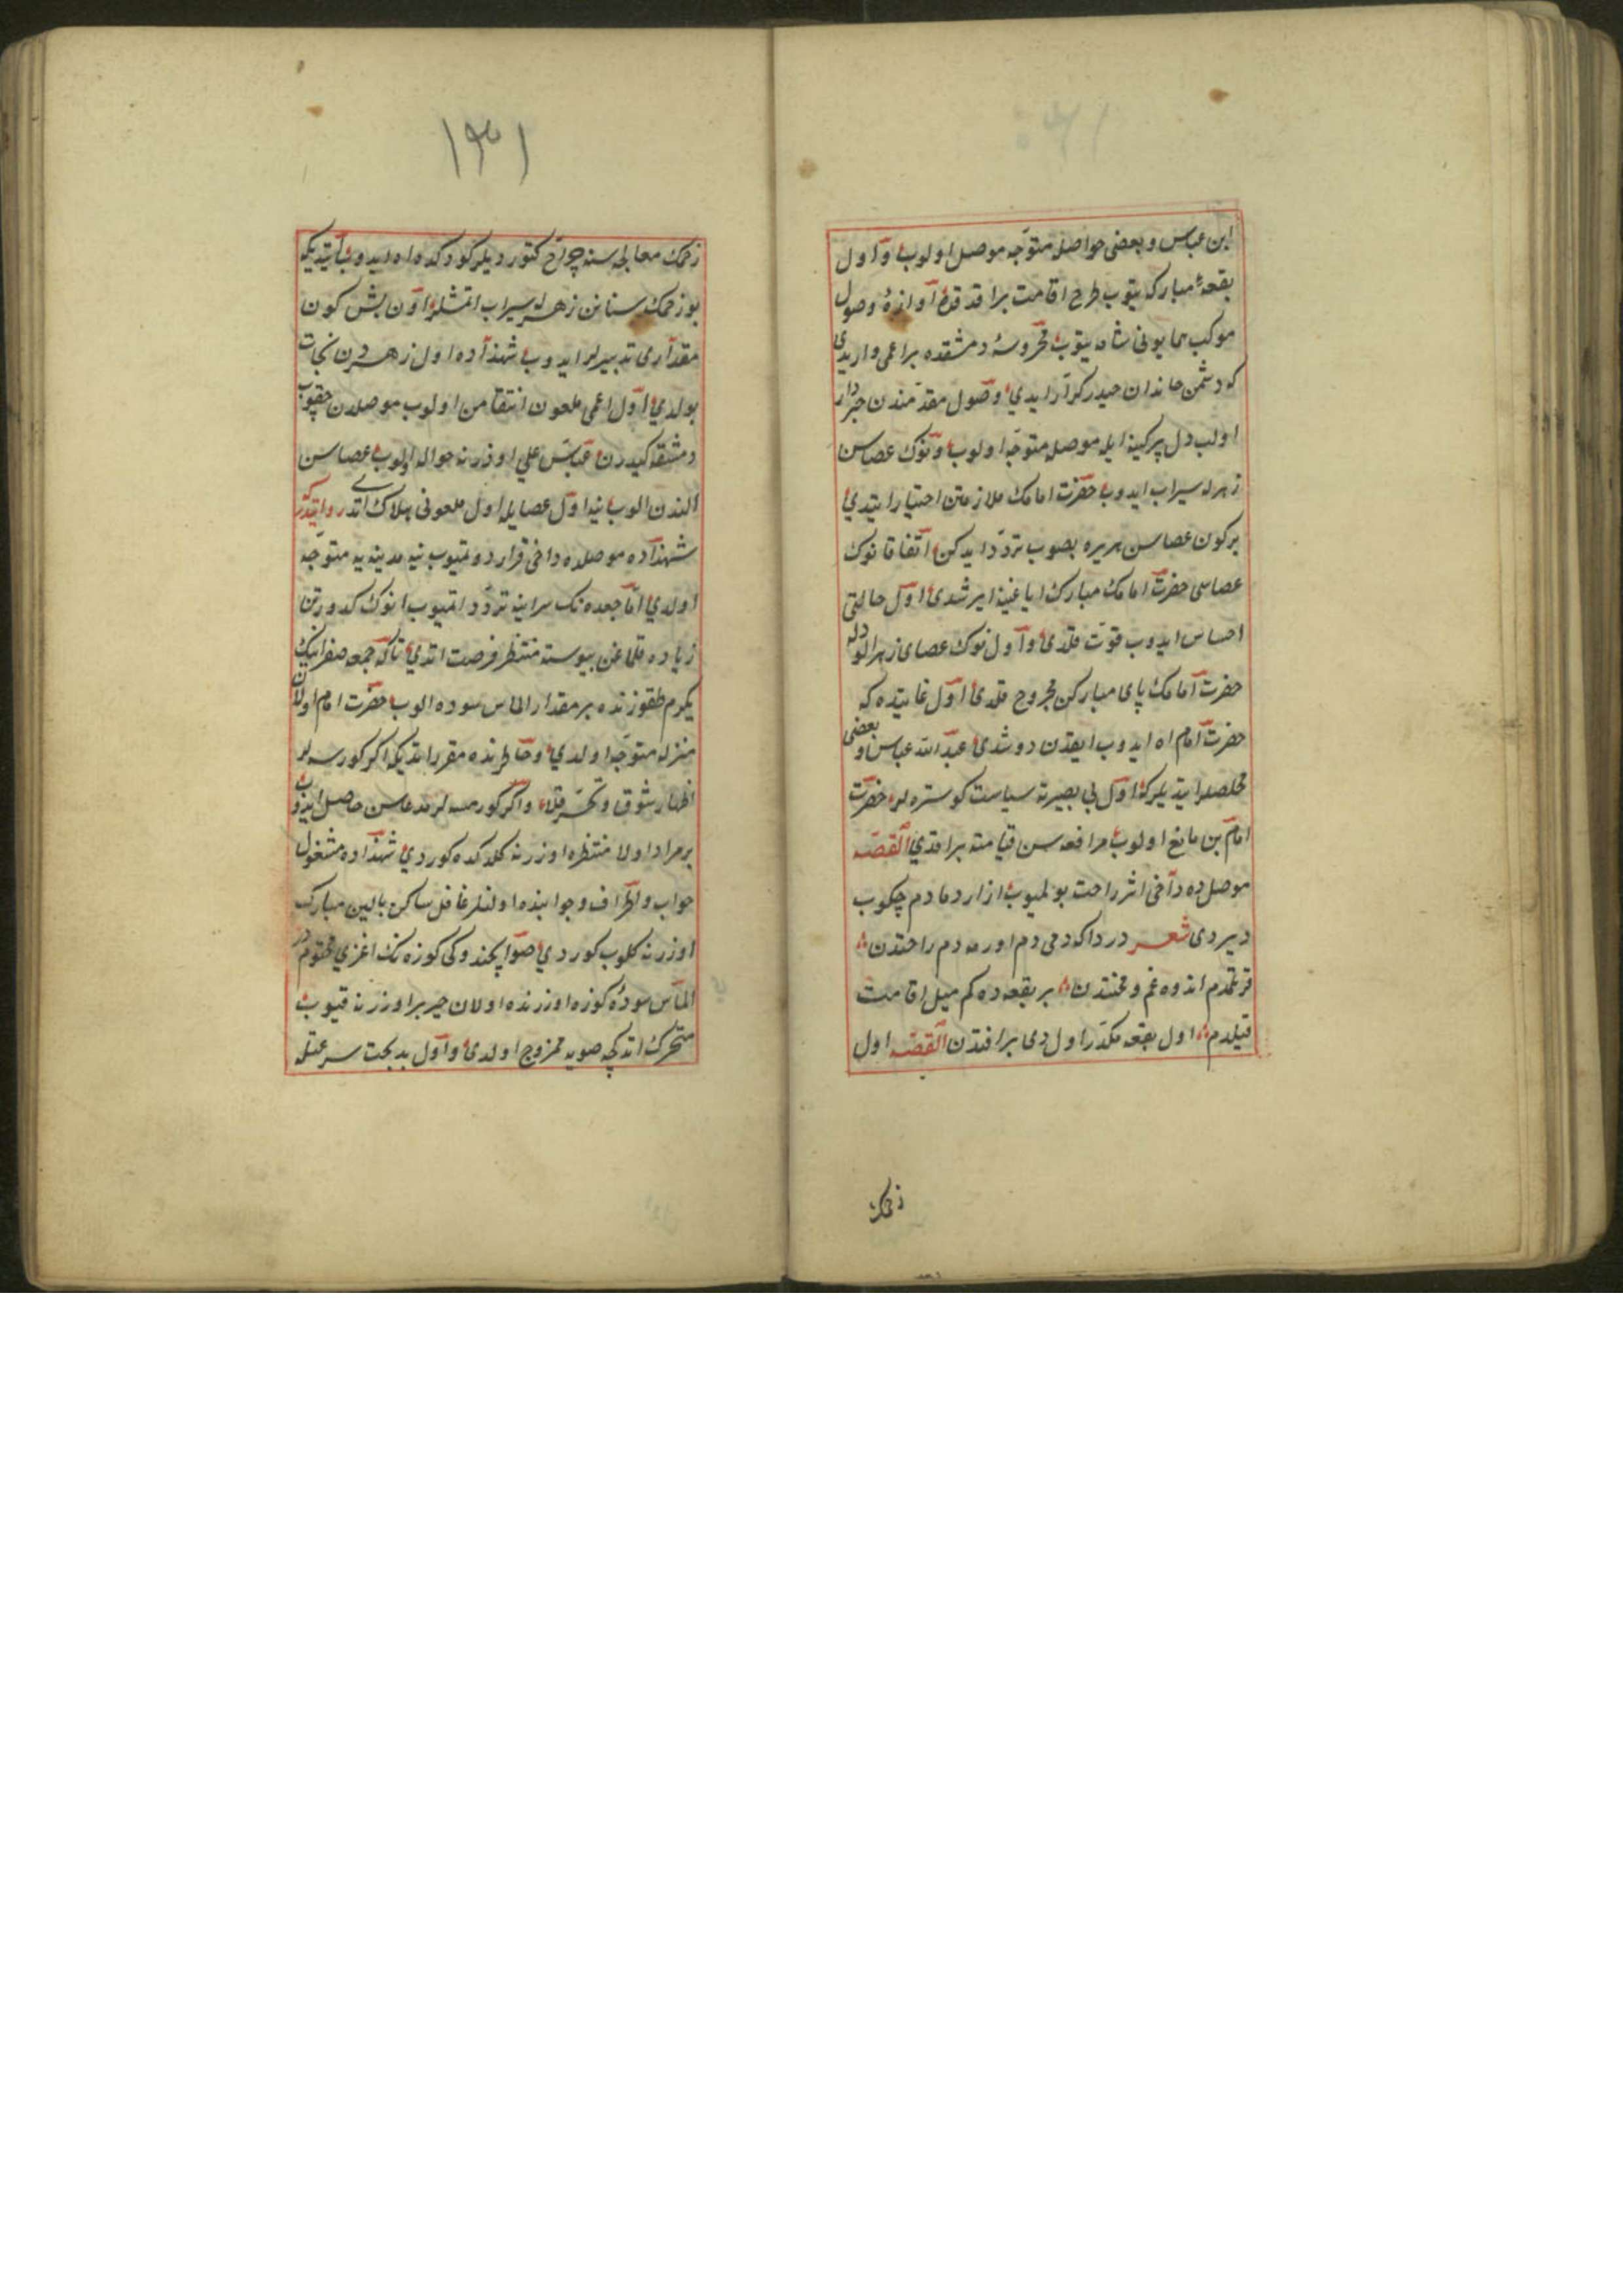 ابن عباس و بعضى حواصله متوجه موصل اولوب و اول
بقعهٔ مباركه يتوب طرح اقامت براقدقده آوازهٔ وصول
موكب همايونى شام يتوب محروسهٔ دمشقده بر اعمى واريدى
كه دشمن خاندان حيدر كرار ايدى وصول مقدمندن خبردار
اولب دل پركينه ايله موصله متوجه اولوب و نوك عصاسن
زهرله سيراب ايدوب حضرت امامك ملازمتن اختيار ايتدى
بر كون عصاسن هر يره بصوب تردد ايدركن اتفاقا نوك
عصاسى حضرت امامك مبارك اياغينه ايرشدى اول حالتى
احساس ايدوب قوت قلدى و اول نوك عصاى زهرالوده
حضرت امامك پاى مباركن مجروح قلدى اول غايتده كه
حضرت امام اه ايدوب ايقدن دوشدى عبد الله عباس و بعضى
مخلصلر ايتديلركه اول بى بصيرته سياست كوستره لر حضرت
امام بن مانع اولوب مرافعه سن قيامته براقدى القصه
موصلده داخى اثر راحت بولميوب ازار دمادم چكوب
ديردى شعر دردا كه دمى دم اورمدم راحتدن
قرتلمدم اندوه غم و محنتدن بر بقعه ده كم ميل اقامت
قيلدم اول بقعه مكدر اولدى بر افتدن القصه اول
زخمك
١٣١
زخمك معالجه سنه جراح كتورديلر كوردكده اه ايدوب ايتديكه
بو زخمك سنانن زهرله سيراب اتمشلر اون بش كون
مقدارى تدبيرلر ايدوب شهزاده اول زهردن نجات
بولدى اول اعمى ملعون انتقامن اولوب موصلدن چقوب
دمشقه كيدرن عباس على اوزرنه حواله اولوب عصاسن
الندن الوب ينه اول عصايله اول ملعونى هلاك اتدى روايتدر
شهزاده موصلده داخى قرار دوتميوب ينه مدينه يه متوجه
اولدى اما جعده نك سراينه تردد اتميوب انوك كدورتن
زياده قلماغن پيوسته منتظر فرصت اتدى تاكه جمعه صفر ايك
يكرم طقوزنده بر مقدار الماس سوده الوب حضرت امام اولان
منزله متوجه اولدى و خاطرنده مقرر اتديكه اكر كورسه لر
اظهار شوق و تحسر قلا و اكر كورمسه لر مدعاسن حاصل ايدوب
بر مراد اولا منتظره اوزرنه كلدكده كوردى شهزاده مشغول
خواب و اطراف و جوانبنده اولنلر غافل ساكن بالين مبارك
اوزرنه كلوب كوردى صو ايچندوكى كوزه نك اغزى مختومدر
الماس سودهٔ كوزه اوزرنده اولان حرير اوزرنه قيوب
متحرك اتدكچه صويه ممزوج اولدى و اول بدبخت سرعتله